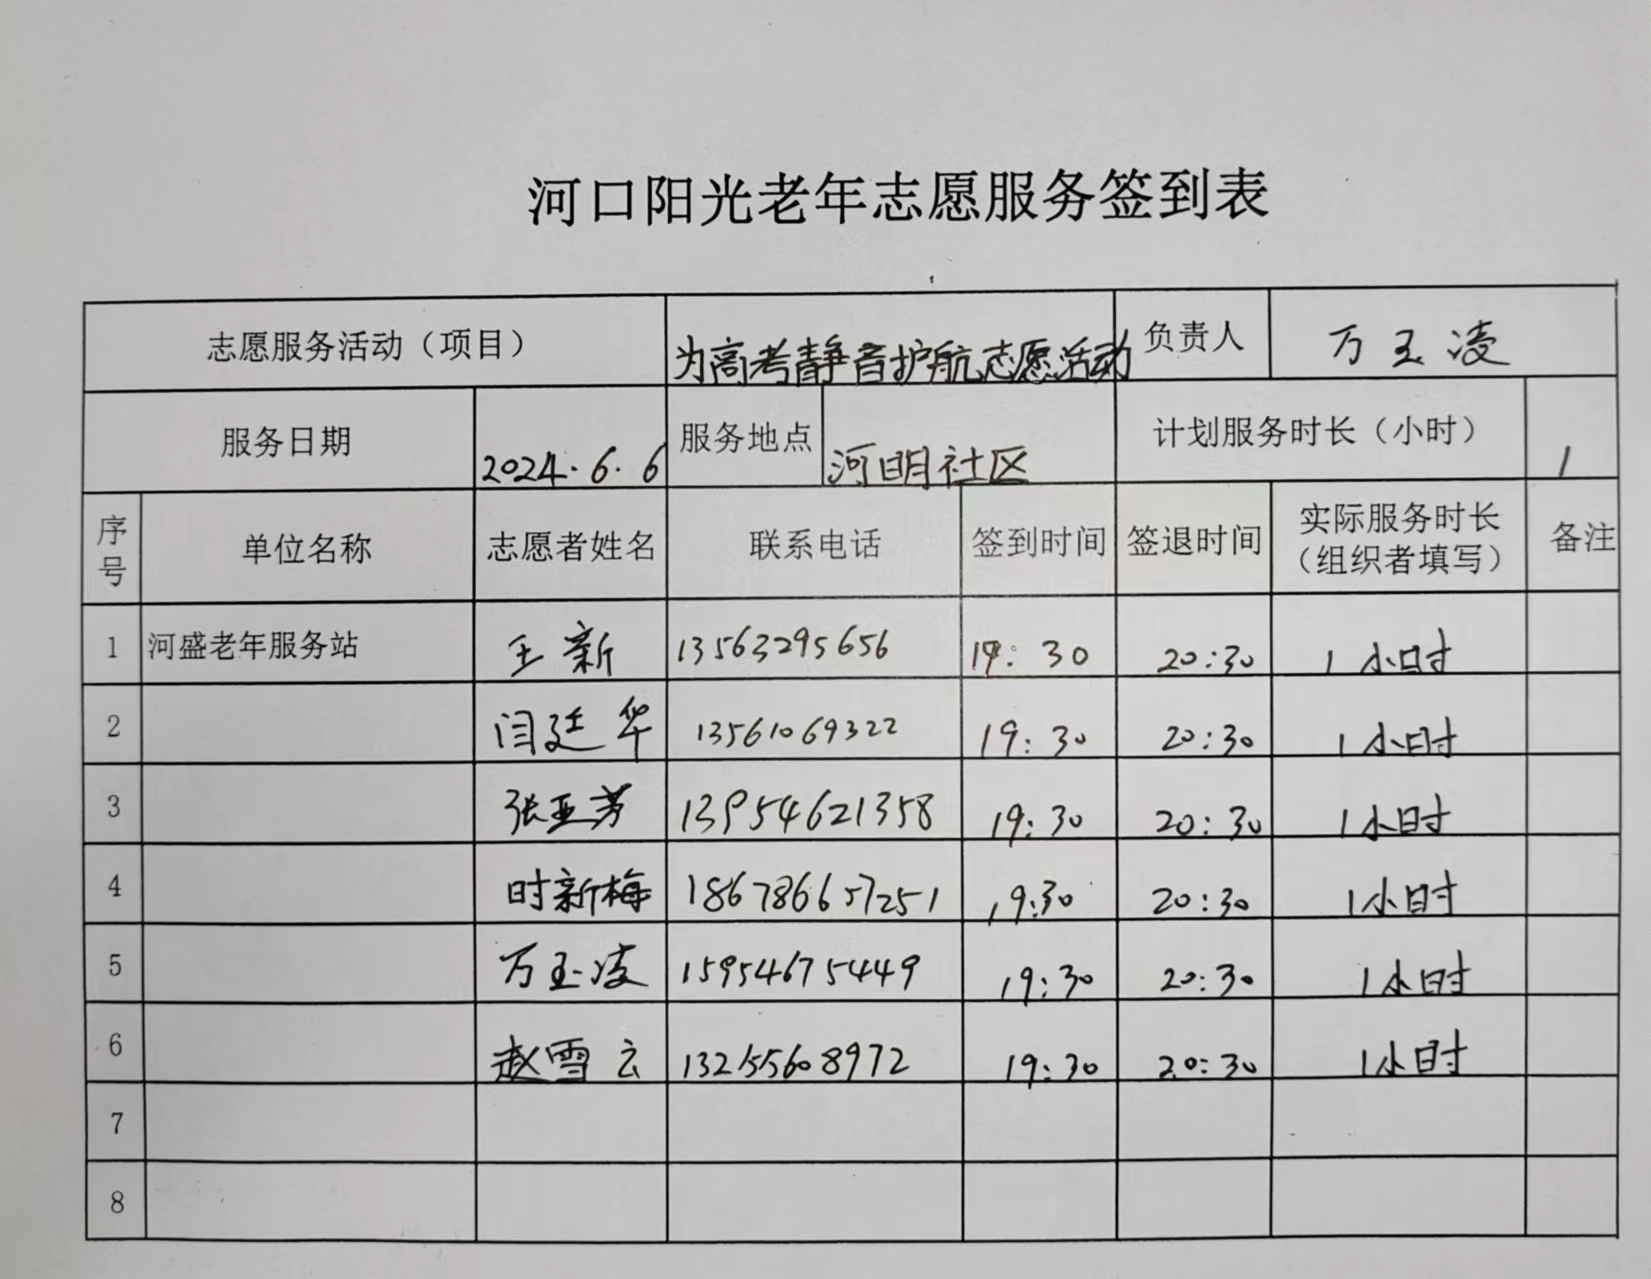 河口阳光老年志愿服务签到表
志愿服务活动（项目） 为高考静音护航志愿活动 负责人 万玉凌
服务日期 2024.6.6 服务地点 河明社区 计划服务时长（小时） 1
序号 单位名称 志愿者姓名 联系电话 签到时间 签退时间 实际服务时长（组织者填写） 备注
1 河盛老年服务站 王新 13563295656 19:30 20:30 1小时
2 闫廷华 13561069322 19:30 20:30 1小时
3 张亚芳 13954621358 19:30 20:30 1小时
4 时新梅 19:30 20:30 1小时
5 万玉凌 15954675449 19:30 20:30 1小时
6 赵雪云 13255608972 19:30 20:30 1小时
7
8